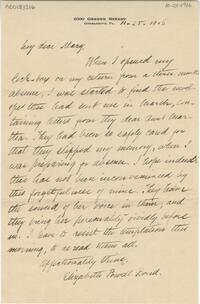 6300 Greene Street
Germantown, Pa.
10.25.1906
My dear Mary,
When I opened my
lock-box on my return from a three months
absence, I was startled to find the envel-
opes thou had sent me in March, con-
taining letters from thy dear Aunt Mar-
tha. They had been so safely cared for
that they slipped my memory, when I
was preparing for absence. I hope indeed
this has not been inconvenienced by
this forgetfulness of mine. They have
the sound of her voice in them, and
they bring her personality vividly before
me. I have to resist the temptation this
morning, to re-read them all.
Affectionately thine,
Elizabeth Powell Bond.